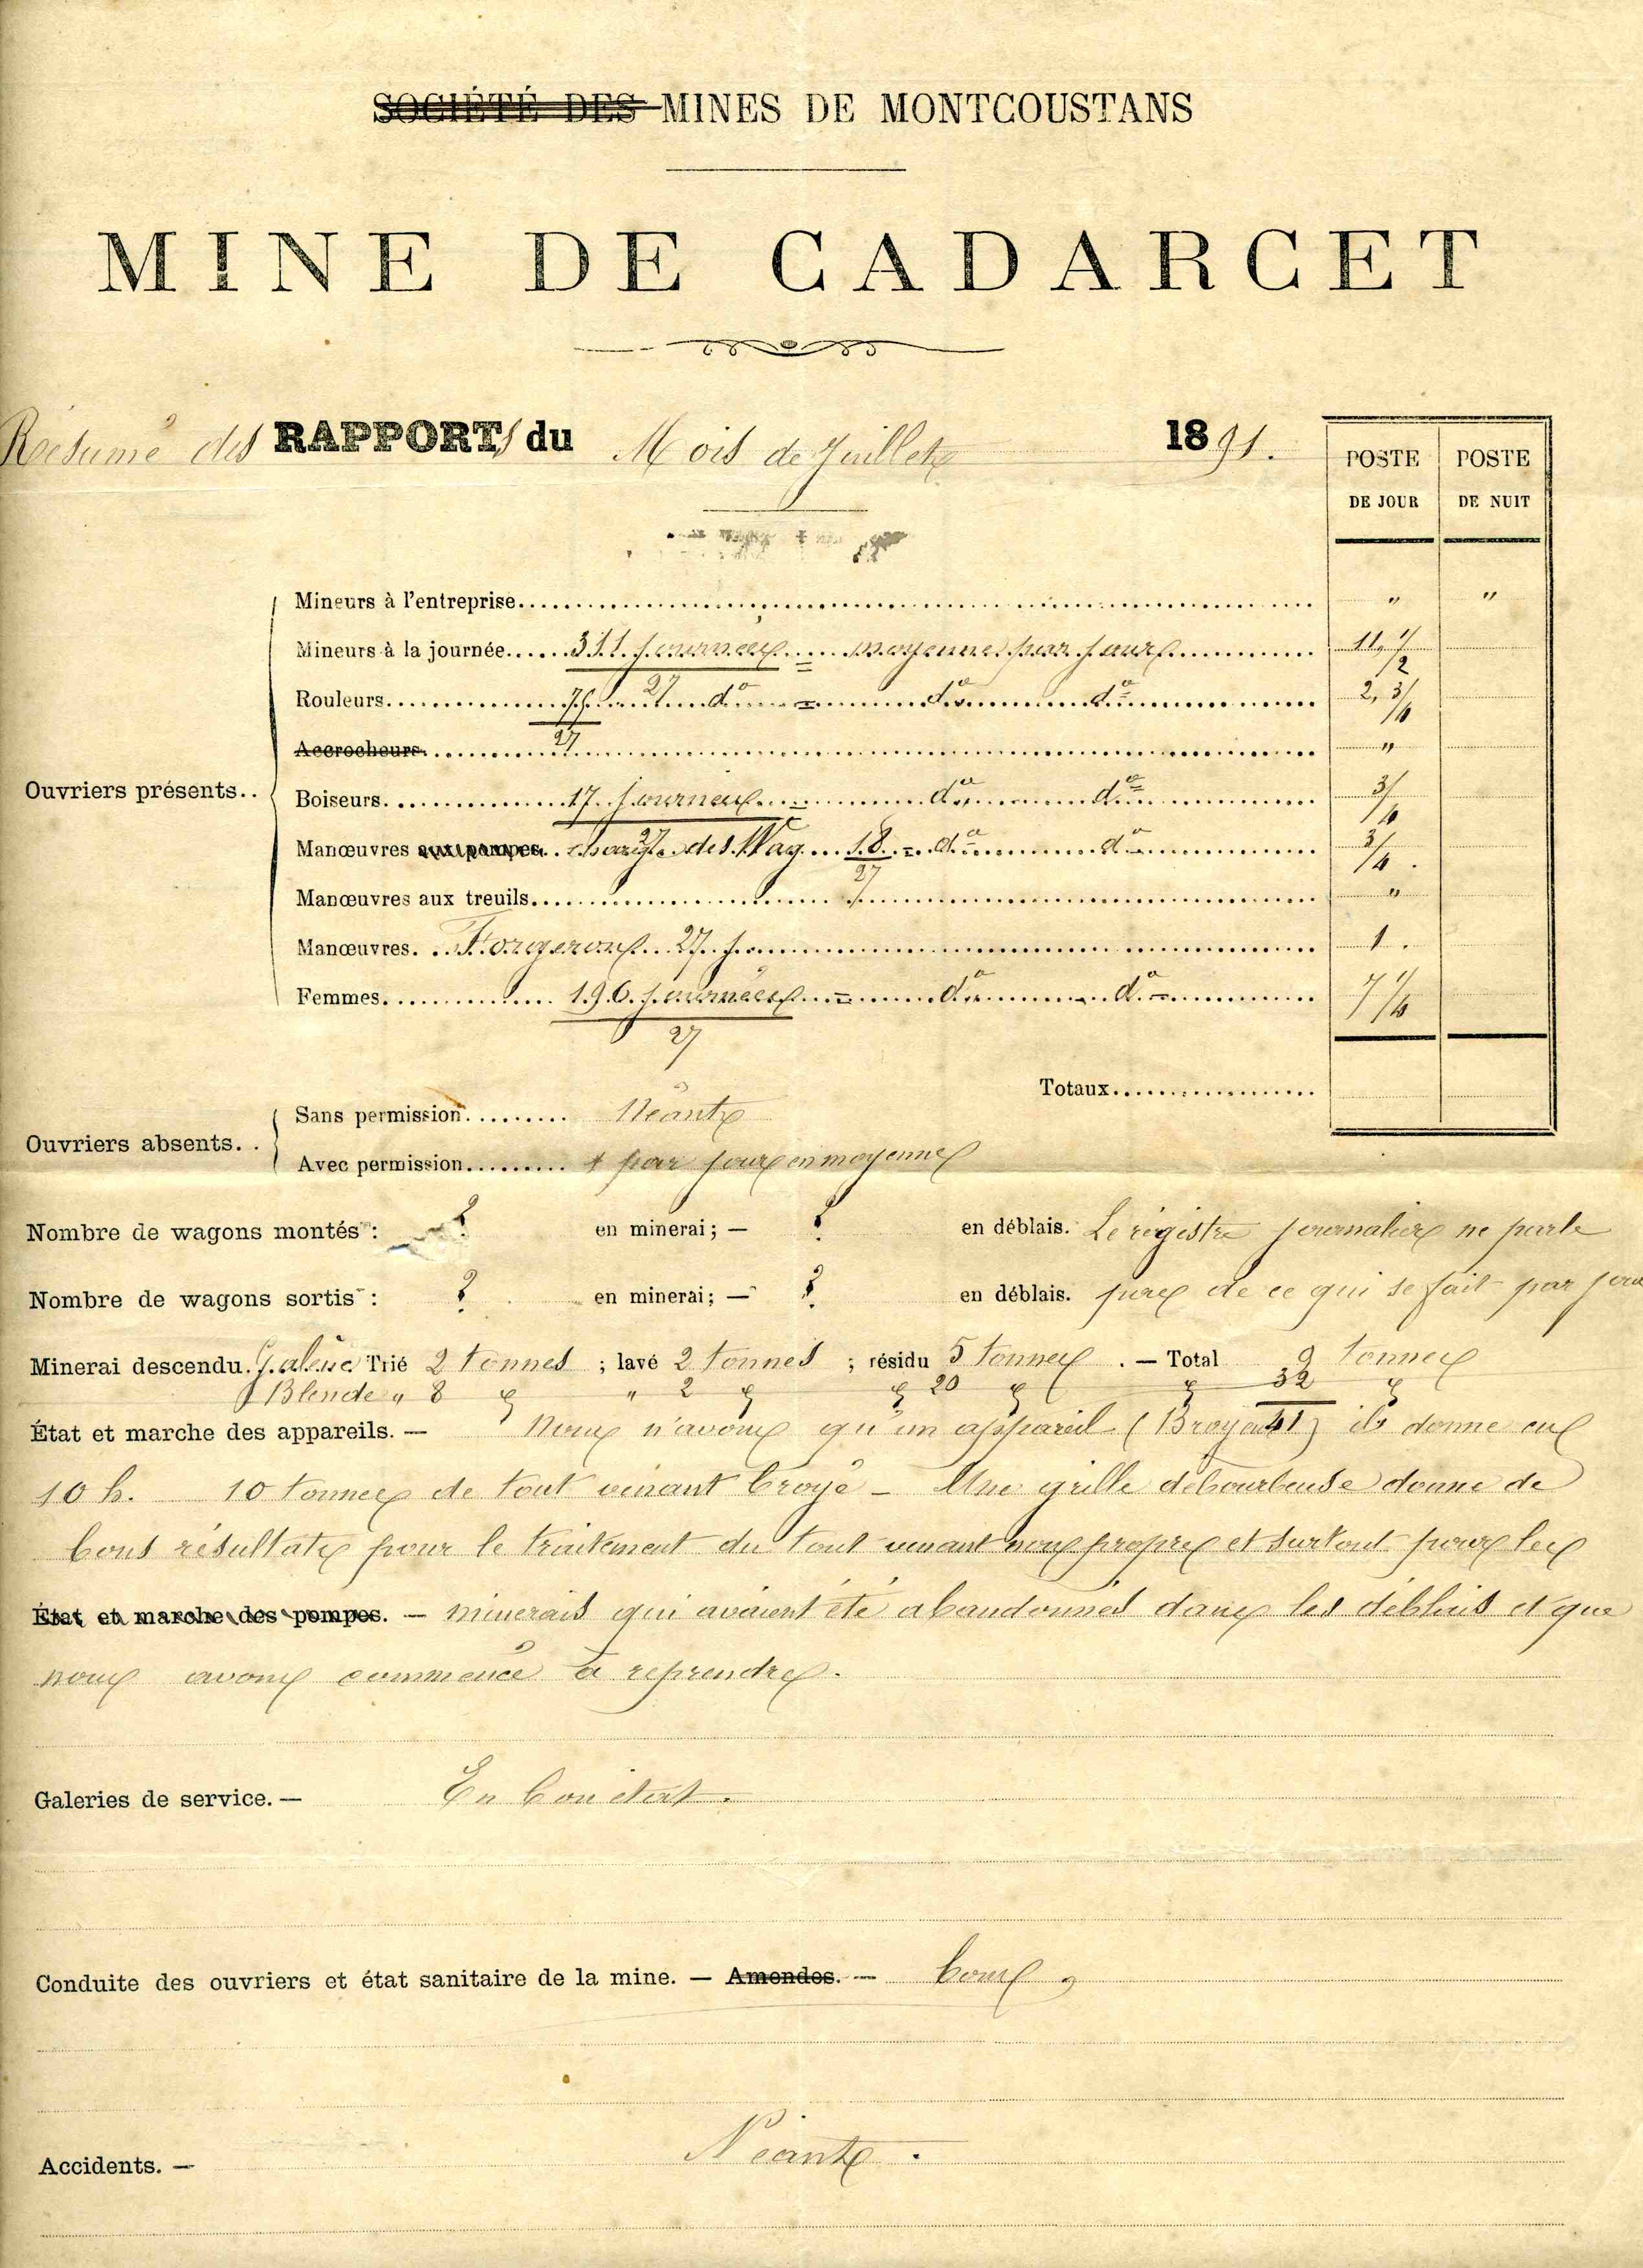 SOCIÉTÉ DES MINES DE MONTCOUSTANS
MINE DE CADARCET
Résumé des RAPPORTS du Mois de Juillet 1891.
POSTE DE JOUR POSTE DE NUIT
Mineurs à l'entreprise. " "
Mineurs à la journée. 311 journées = moyenne par jour 11, 1/2
27
Rouleurs. do = do do 2, 3/4
27
Accrocheurs. "
Ouvriers présents..
Boiseurs. 17 journées = do do 3/4
27
Manœuvres aux pompes. des Wag. 18 = do do 3/4.
27
Manœuvres aux treuils. "
Manœuvres. Forgerons 27 j. 1.
Femmes. 196 journées = do do 7 1/4
27
Totaux.
Ouvriers absents..
Sans permission. Néant
Avec permission. 1 par jour en moyenne
Nombre de wagons montés : ? en minerai; — ? en déblais. Le régistre journalier ne parle
Nombre de wagons sortis : ? en minerai; — ? en déblais. pas de ce qui se fait par jour
Minerai descendu. Galène Trié 2 tonnes ; lavé 2 tonnes ; résidu 5 tonnes . — Total 9 tonnes
Blende " 8 " " 2 " " 20 " " 32 "
41
État et marche des appareils. — Nous n'avons qu'un appareil (Broyeur) il donne en
10 h. 10 tonnes de tout venant broyé — Une grille débourbeuse donne de
bons résultats pour le traitement du tout venant non propre et surtout pour les
État et marche des pompes. — minerais qui avaient été abandonnés dans les déblais et que
nous avons commencé à reprendre.
Galeries de service. — En bon état.
Conduite des ouvriers et état sanitaire de la mine. — Amendes. — bons
Accidents. — Néant.